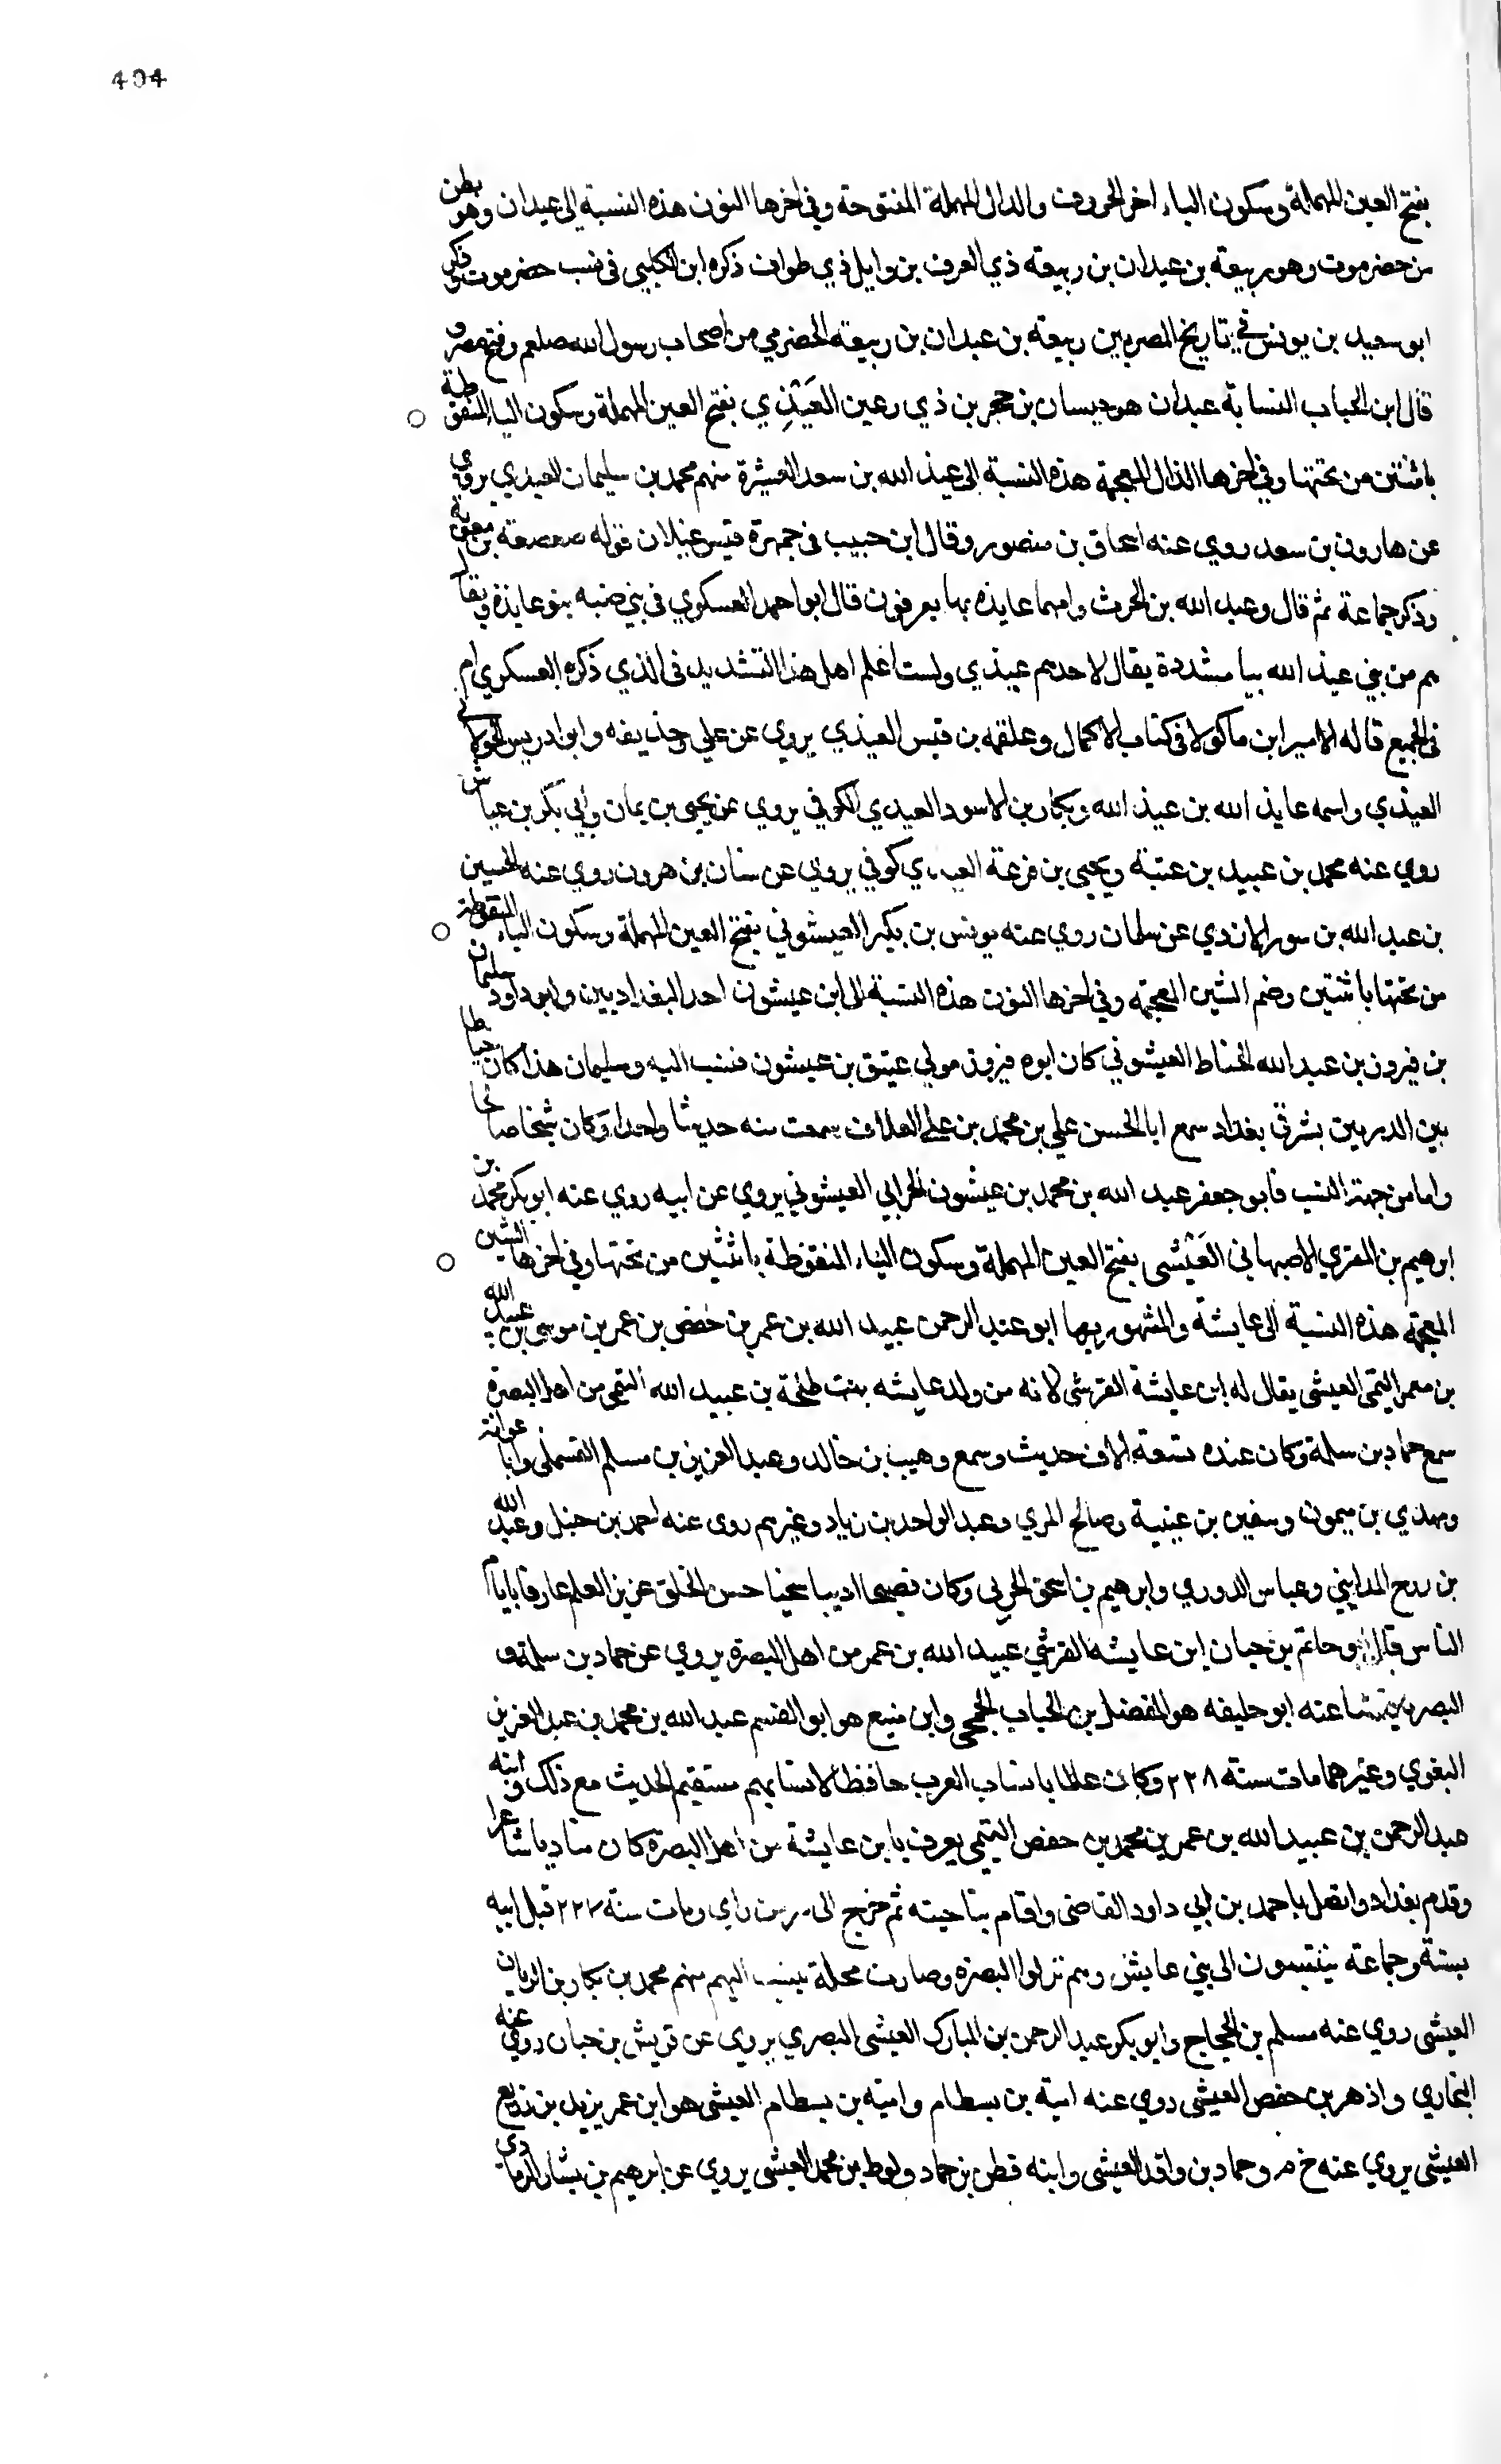 404
بفتح العين المهملة وسكون الياء اخر الحروف والدال المهملة المفتوحة وفي اخرها النون هذه النسبة الى عيدان وهو بطن
من حضرموت وهو ربيعة بن عيدان بن ربيعة ذي العرف بن وايل ذي طواف ذكره ابن الكلبي في نسب حضرموت وذكر
ابو سعيد بن يونس في تاريخ المصريين ربيعة بن عبدان بن ربيعة الحضرمي من اصحاب رسول الله صلعم وفتح مصر و
قال ابن الحباب النسابة عبدان هو ديسان بن حجر بن ذي رعين العَيْذِي بفتح العين المهملة وسكون اليا المنقوطة
باثنتين من تحتها وفي اخرها الذال المعجمة هذه النسبة الى عيذ الله بن سعد العشيرة منهم محمد بن سليمان العيذي يروي
عن هارون بن سعد روي عنه اسحاق بن منصور وقال ابن حبيب في جمهرة قيس عيلان قوله صعصعه بن معوية
وذكر جماعة ثم قال وعبد الله بن الحرث وامهما عايذه بها يعرفون قال ابو احمد العسكري في بني ضبه بنو عايذة ويقال
هم من بني عيذ الله بيا مشددة يقال لاحدهم عيذي ولست اعلم اهل هذا التشديد في الذي ذكره العسكري ام
في الجميع قاله الامير ابن ماكولا في كتاب الاكمال وعلقمه بن قيس العيذي يروي عن علي وحذيفه وابو ادريس الخولاني
العيذي واسمه عايذ الله بن عيذ الله وبكار بن الاسود العيدي الكوفي يروي عن يحيى بن يمان وابي بكر بن عياش
روي عنه محمد بن عبيد بن عتبة ويحيى بن قزعة العيدي كوفي يروي عن سنان بن هرون روي عنه الحسين
بن عبد الله بن سور الازدي عن سلمان روي عنه يونس بن بكير العيشوني بفتح العين المهملة وسكون الياء المنقوطة
من تحتها باثنتين وضم الشين المعجمة وفي اخرها النون هذه النسبة الى ابن عيشون احد البغداديين وابو داود سليمان
بن فيروز بن عبد الله الخياط العيشوني كان ابوه فيروز مولي عتيق بن عيشون فنسب اليه وسليمان هذا كان خياطا
بين الدربين بشرقي بغداد سمع ابا الحسن علي بن محمد بن علي العلاف سمعت منه حديثا واحدا وكان شيخا صالحا
واما من جهة النسب فابو جعفر عبد الله بن محمد بن عيشون الحراني العيشوني يروي عن ابيه روي عنه ابو بكر محمد بن
ابرهيم بن المقري الاصبهاني العَيْشي بفتح العين المهملة وسكون الياء المنقوطة باثنتين من تحتها وفي اخرها الشين
المعجمة هذه النسبة الى عايشة والمشهور بها ابو عبد الرحمن عبيد الله بن عمر بن حفص بن عمر بن موسى بن عبيد الله
بن معمر التيمي العيشي يقال له ابن عايشة القرشي لانه من ولد عايشه بنت طلحة بن عبيد الله التيمي من اهل البصرة
سمع حماد بن سلمة وكان عنده تسعة الاف حديث وسمع وهيب بن خالد وعبد العزيز بن مسلم القسملي وابا عوانة
ومهدي بن ميمون وسفين بن عيينة وصالح المري وعبد الواحد بن زياد وغيرهم روى عنه احمد بن حنبل وعبد الله
بن روح المدايني وعباس الدوري وابرهيم بن اسحق الحربي وكان فصيحا اديبا سخيا حسن الخلق عزيز العلم عارفا بايام
الناس قال ابو حاتم بن حبان ابن عايشة القرشي عبيد الله بن عمر من اهل البصرة يروي عن حماد بن سلمة و
البصريين ثنا عنه ابو خليفه هو الفضل بن الحباب الجمحي وابن منيع هو ابو القسم عبد الله بن محمد بن عبد العزيز
البغوي وغيرهما مات سنة ٢٢٨ وكان عالما بانساب العرب حافظا لانسابهم مستقيم الحديث مع ذلك وابنه
عبد الرحمن بن عبيد الله بن عمر بن محمد بن حفص التيمي يعرف بابن عايشة من اهل البصرة كان متاديا شاعرا
وقدم بغداد واتصل باحمد بن ابي داود القاضي واقام بناحيته ثم خرج الى سر من راي ومات سنة ٢٢٧ قبل ابيه
بسنة وجماعة ينتسبون الى بني عايش وهم نزلوا البصرة وصارت محلة تنسب اليهم منهم محمد بن بكار بن الريان
العيشي روي عنه مسلم بن الحجاج وابو بكر عبد الرحمن بن المبارك العيشي البصري يروي عن قريش بن حبان روي عنه
البخاري واذهر بن حفص العيشي روي عنه امية بن بسطام وامية بن بسطام العيشي هو ابن عم يزيد بن زريع
العيشي يروي عنه خ م وحماد بن واقد العيشي وابنه قطن بن حماد ولوط بن محمد العيشي يروي عن ابرهيم بن بشار الرمادي